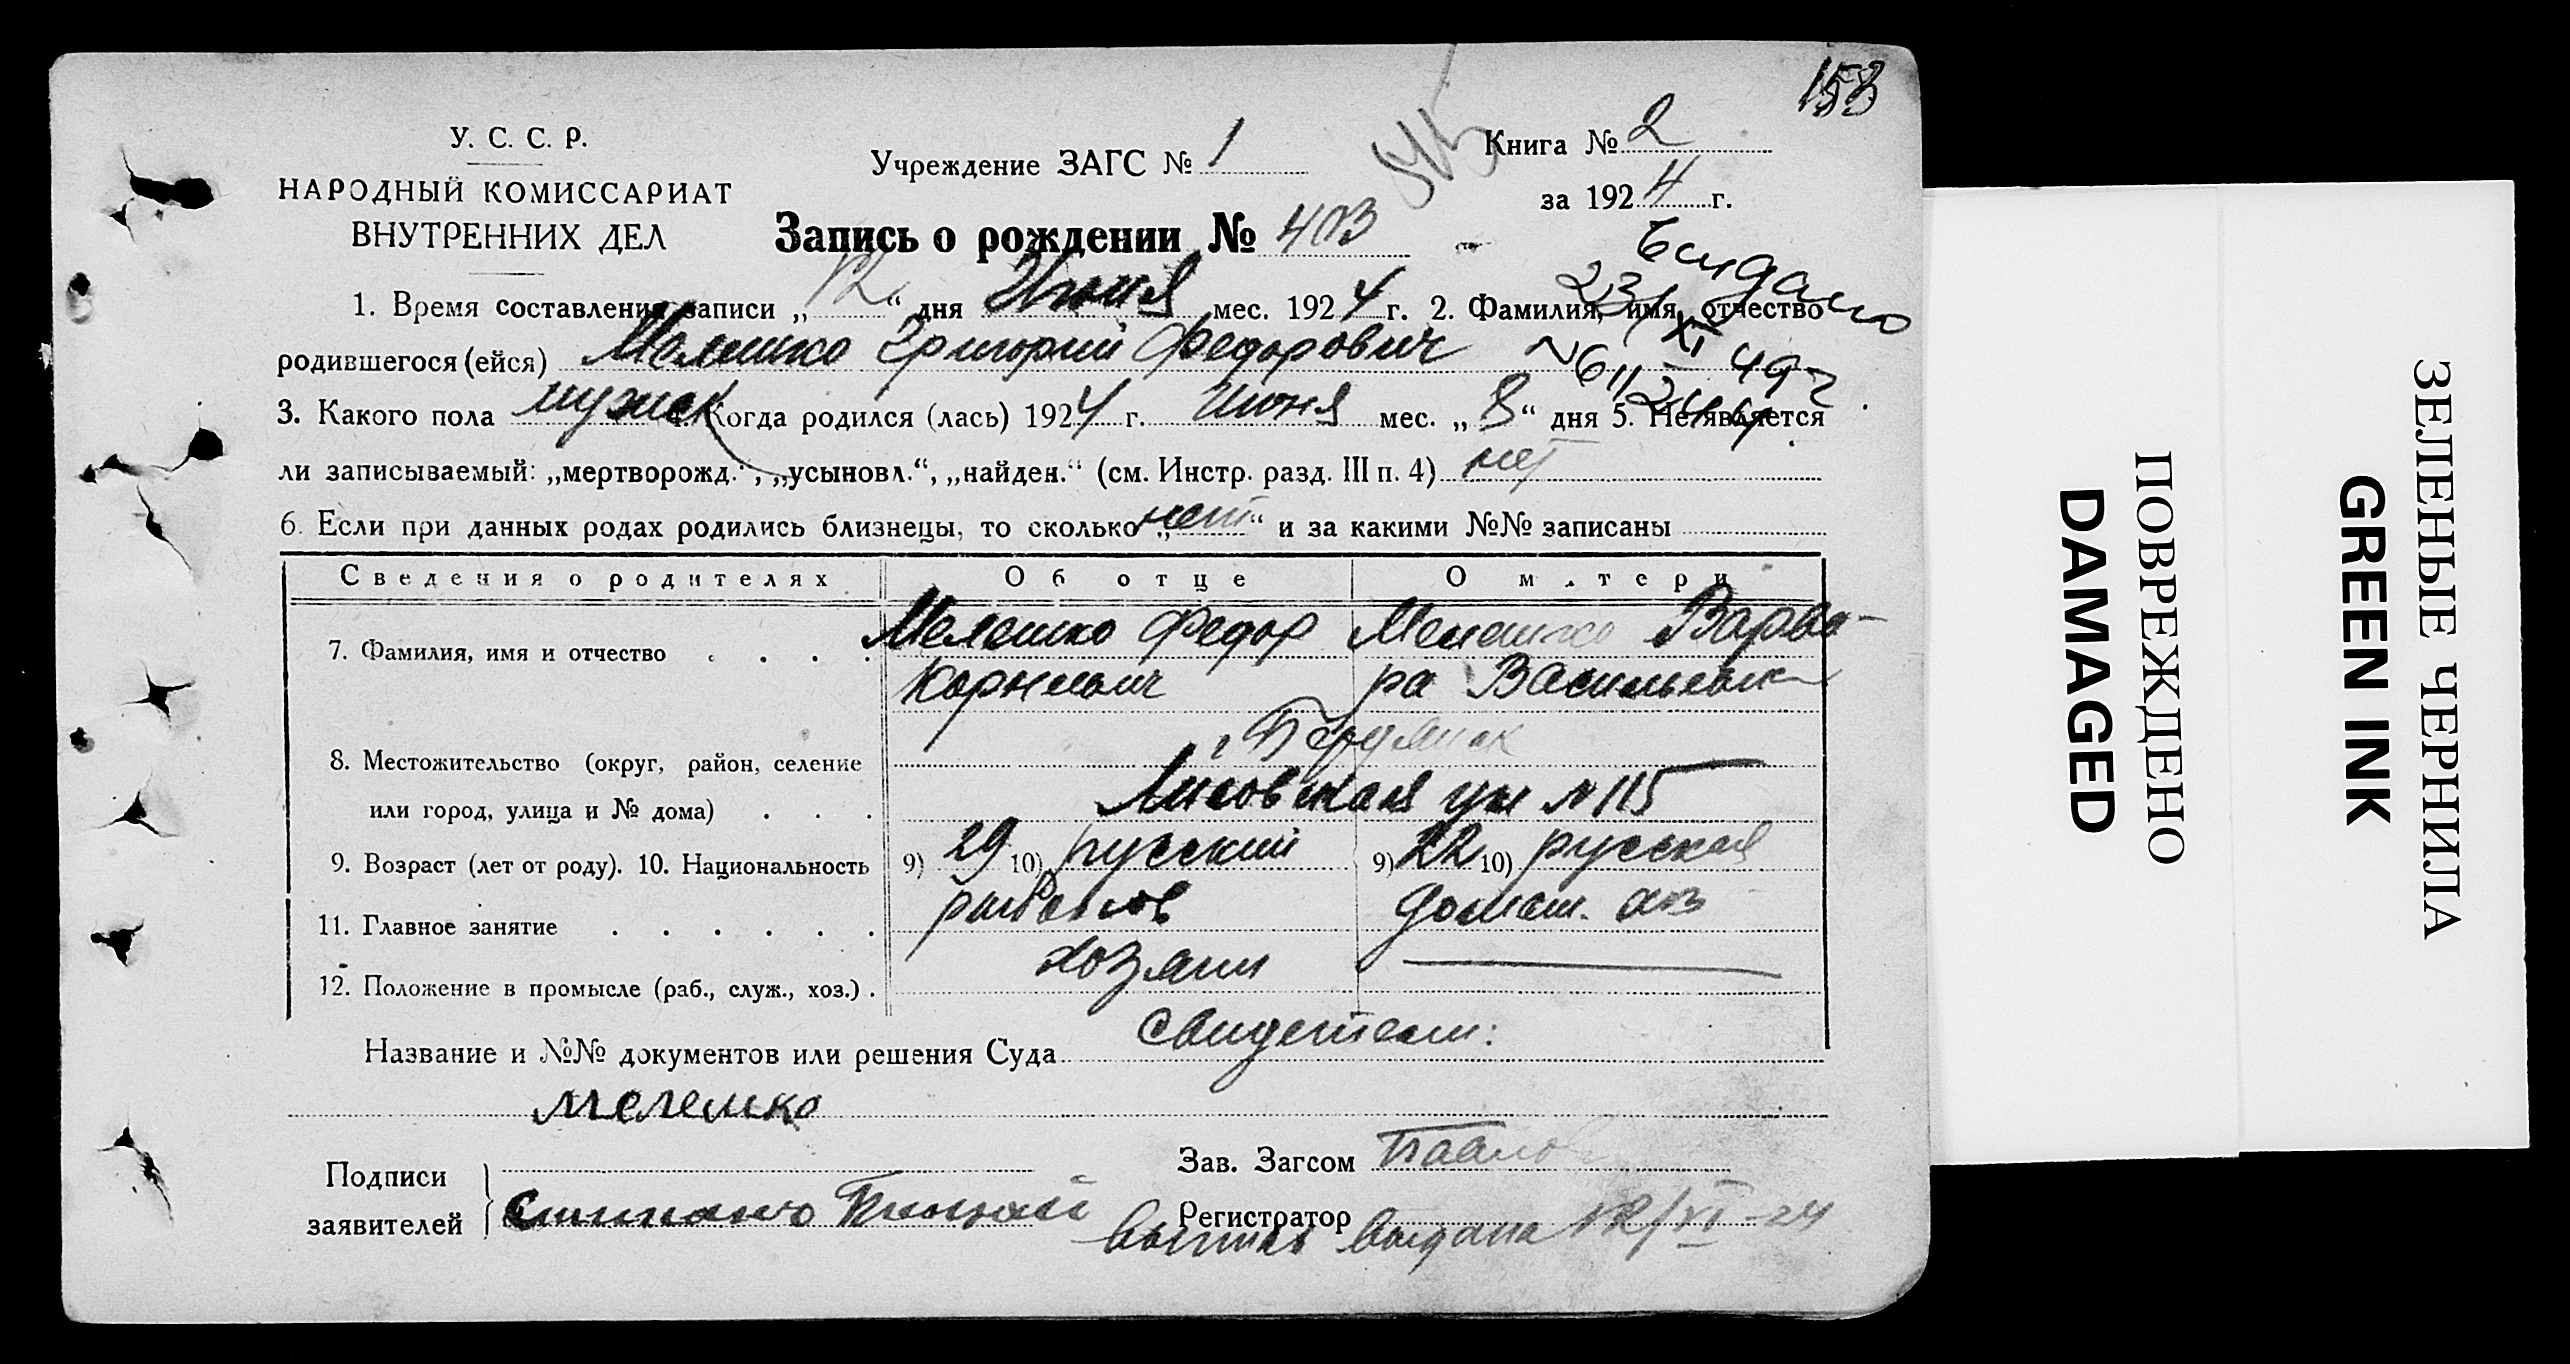 158
У. С. С. Р.
НАРОДНЫЙ КОМИССАРИАТ
ВНУТРЕННИХ ДЕЛ
Учреждение ЗАГС № 1
Книга № 2
за 1924 г.
Запись о рождении № 403
1. Время составления записи „12“ дня Июня мес. 1924 г. 2. Фамилия, имя, отчество
родившегося (ейся) Мелешко Григорий Федорович
3. Какого пола мужск 4. Когда родился (лась) 1924 г. Июня мес. „8“ дня 5. Не является
ли записываемый: „мертворожд.“, „усыновл.“, „найден.“ (см. Инстр. разд. III п. 4) нет
6. Если при данных родах родились близнецы, то сколько „нет“ и за какими №№ записаны
Сведения о родителях Об отце О матери
7. Фамилия, имя и отчество . . . . Мелешко Федор Мелешко Варва-
Корнеевич ра Васильевна
8. Местожительство (округ, район, селение Бердянск
или город, улица и № дома) . . . Лисовская ул № 115
9. Возраст (лет от роду). 10. Национальность 9) 29 10) русский 9) 22 10) русская
11. Главное занятие . . . . . . рыболов домаш. хоз
12. Положение в промысле (раб., служ., хоз.) . хозяин
Название и №№ документов или решения Суда свидетели:
Мелешко
Подписи
заявителей
Зав. Загсом
Регистратор
выпись выдана 12/VI-24
ПОВРЕЖДЕНО
DAMAGED
ЗЕЛЕНЫЕ ЧЕРНИЛА
GREEN INK